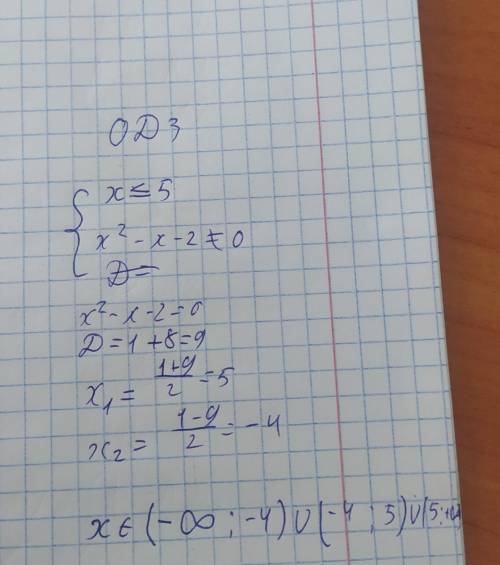 ОДЗ
{ x ≤ 5
x² - x - 2 ≠ 0
D =
x² - x - 2 = 0
D = 1 + 8 = 9
x₁ = (1+9)/2 = 5
x₂ = (1-9)/2 = -4
x ∈ (-∞ ; -4) ∪ (-4 ; 5) ∪ (5 ; +∞